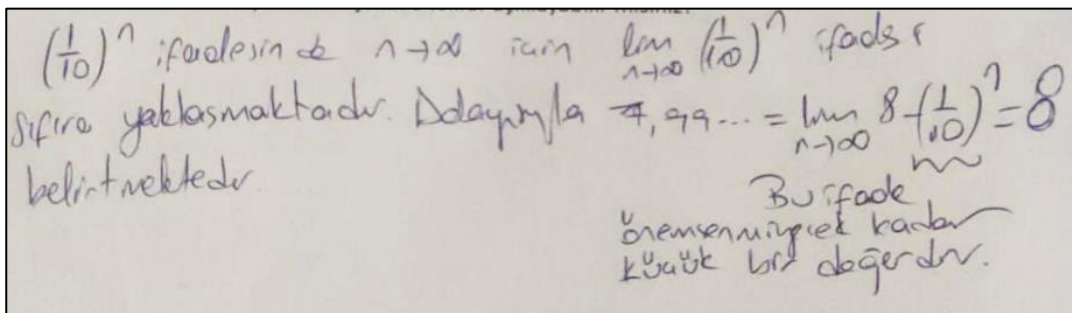 (1/10)^n ifadesinde n→∞ için lim n→∞ (1/10)^n ifadesi
sıfıra yaklaşmaktadır. Dolayısıyla 7,99... = lim n→∞ 8-(1/10)^n = 8
belirtmektedir.
Bu ifade
önemsenmiycek kadar
küçük bir değerdir.